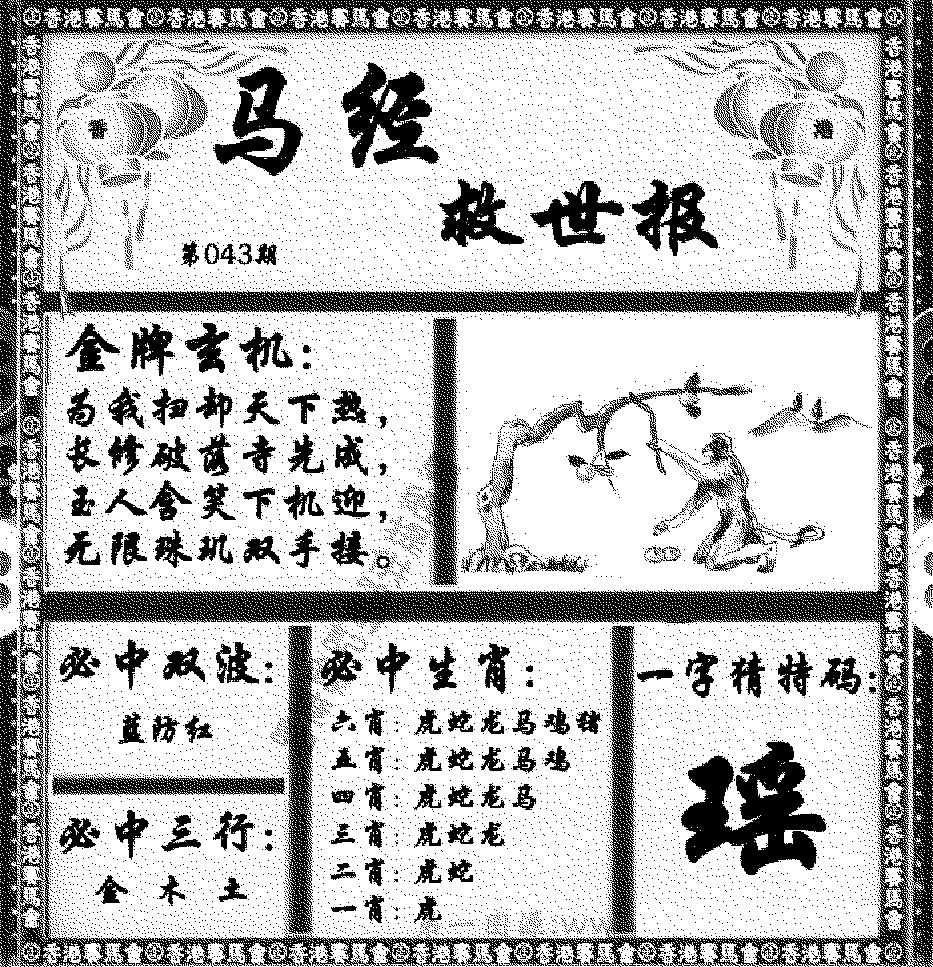 香港賽馬會香港賽馬會香港賽馬會香港賽馬會香港賽馬會香港賽馬會香港賽馬會
香
港
马经
救世报
第043期
金牌玄机:
为我扫却天下热,
长修破落寺先成,
玉人含笑下机迎,
无限珠玑双手接。
必中双波:
蓝防红
必中三行:
金 木 土
必中生肖:
六肖: 虎蛇龙马鸡猪
五肖: 虎蛇龙马鸡
四肖: 虎蛇龙马
三肖: 虎蛇龙
二肖: 虎蛇
一肖: 虎
一字猜特码:
瑶
香港賽馬會香港賽馬會香港賽馬會香港賽馬會香港賽馬會香港賽馬會香港賽馬會